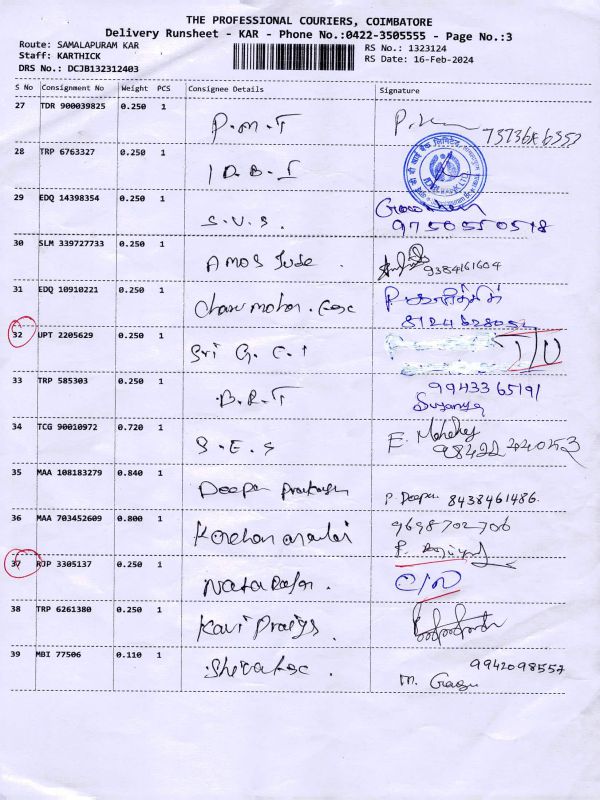 THE PROFESSIONAL COURIERS, COIMBATORE
Delivery Runsheet - KAR - Phone No.:0422-3505555 - Page No.:3
Route: SAMALAPURAM KAR
Staff: KARTHICK
DRS No.: DCJB132312403
RS No.: 1323124
RS Date: 16-Feb-2024
S No Consignment No Weight PCS Consignee Details Signature
27 TDR 900039825 0.250 1 P.M.T
28 TRP 6763327 0.250 1 I D.B.I
29 EDQ 14398354 0.250 1 S.V.S. 9750550518
30 SLM 339727733 0.250 1 Amos Jude. 9384161604
31 EDQ 10910221 0.250 1 Charu mohan. 8124628052
32 UPT 2205629 0.250 1 Sri G.C.I
33 TRP 585303 0.250 1 B.R.T 9943365191
Suganya
34 TCG 90010972 0.720 1 S.E.S E.
35 MAA 108183279 0.840 1 Deepan P Deepan 8438461486.
36 MAA 703452609 0.800 1 9698702706
37 RJP 3305137 0.250 1 Natarajan.
38 TRP 6261380 0.250 1 Kavi
39 MBI 77506 0.110 1 9942098557
M.